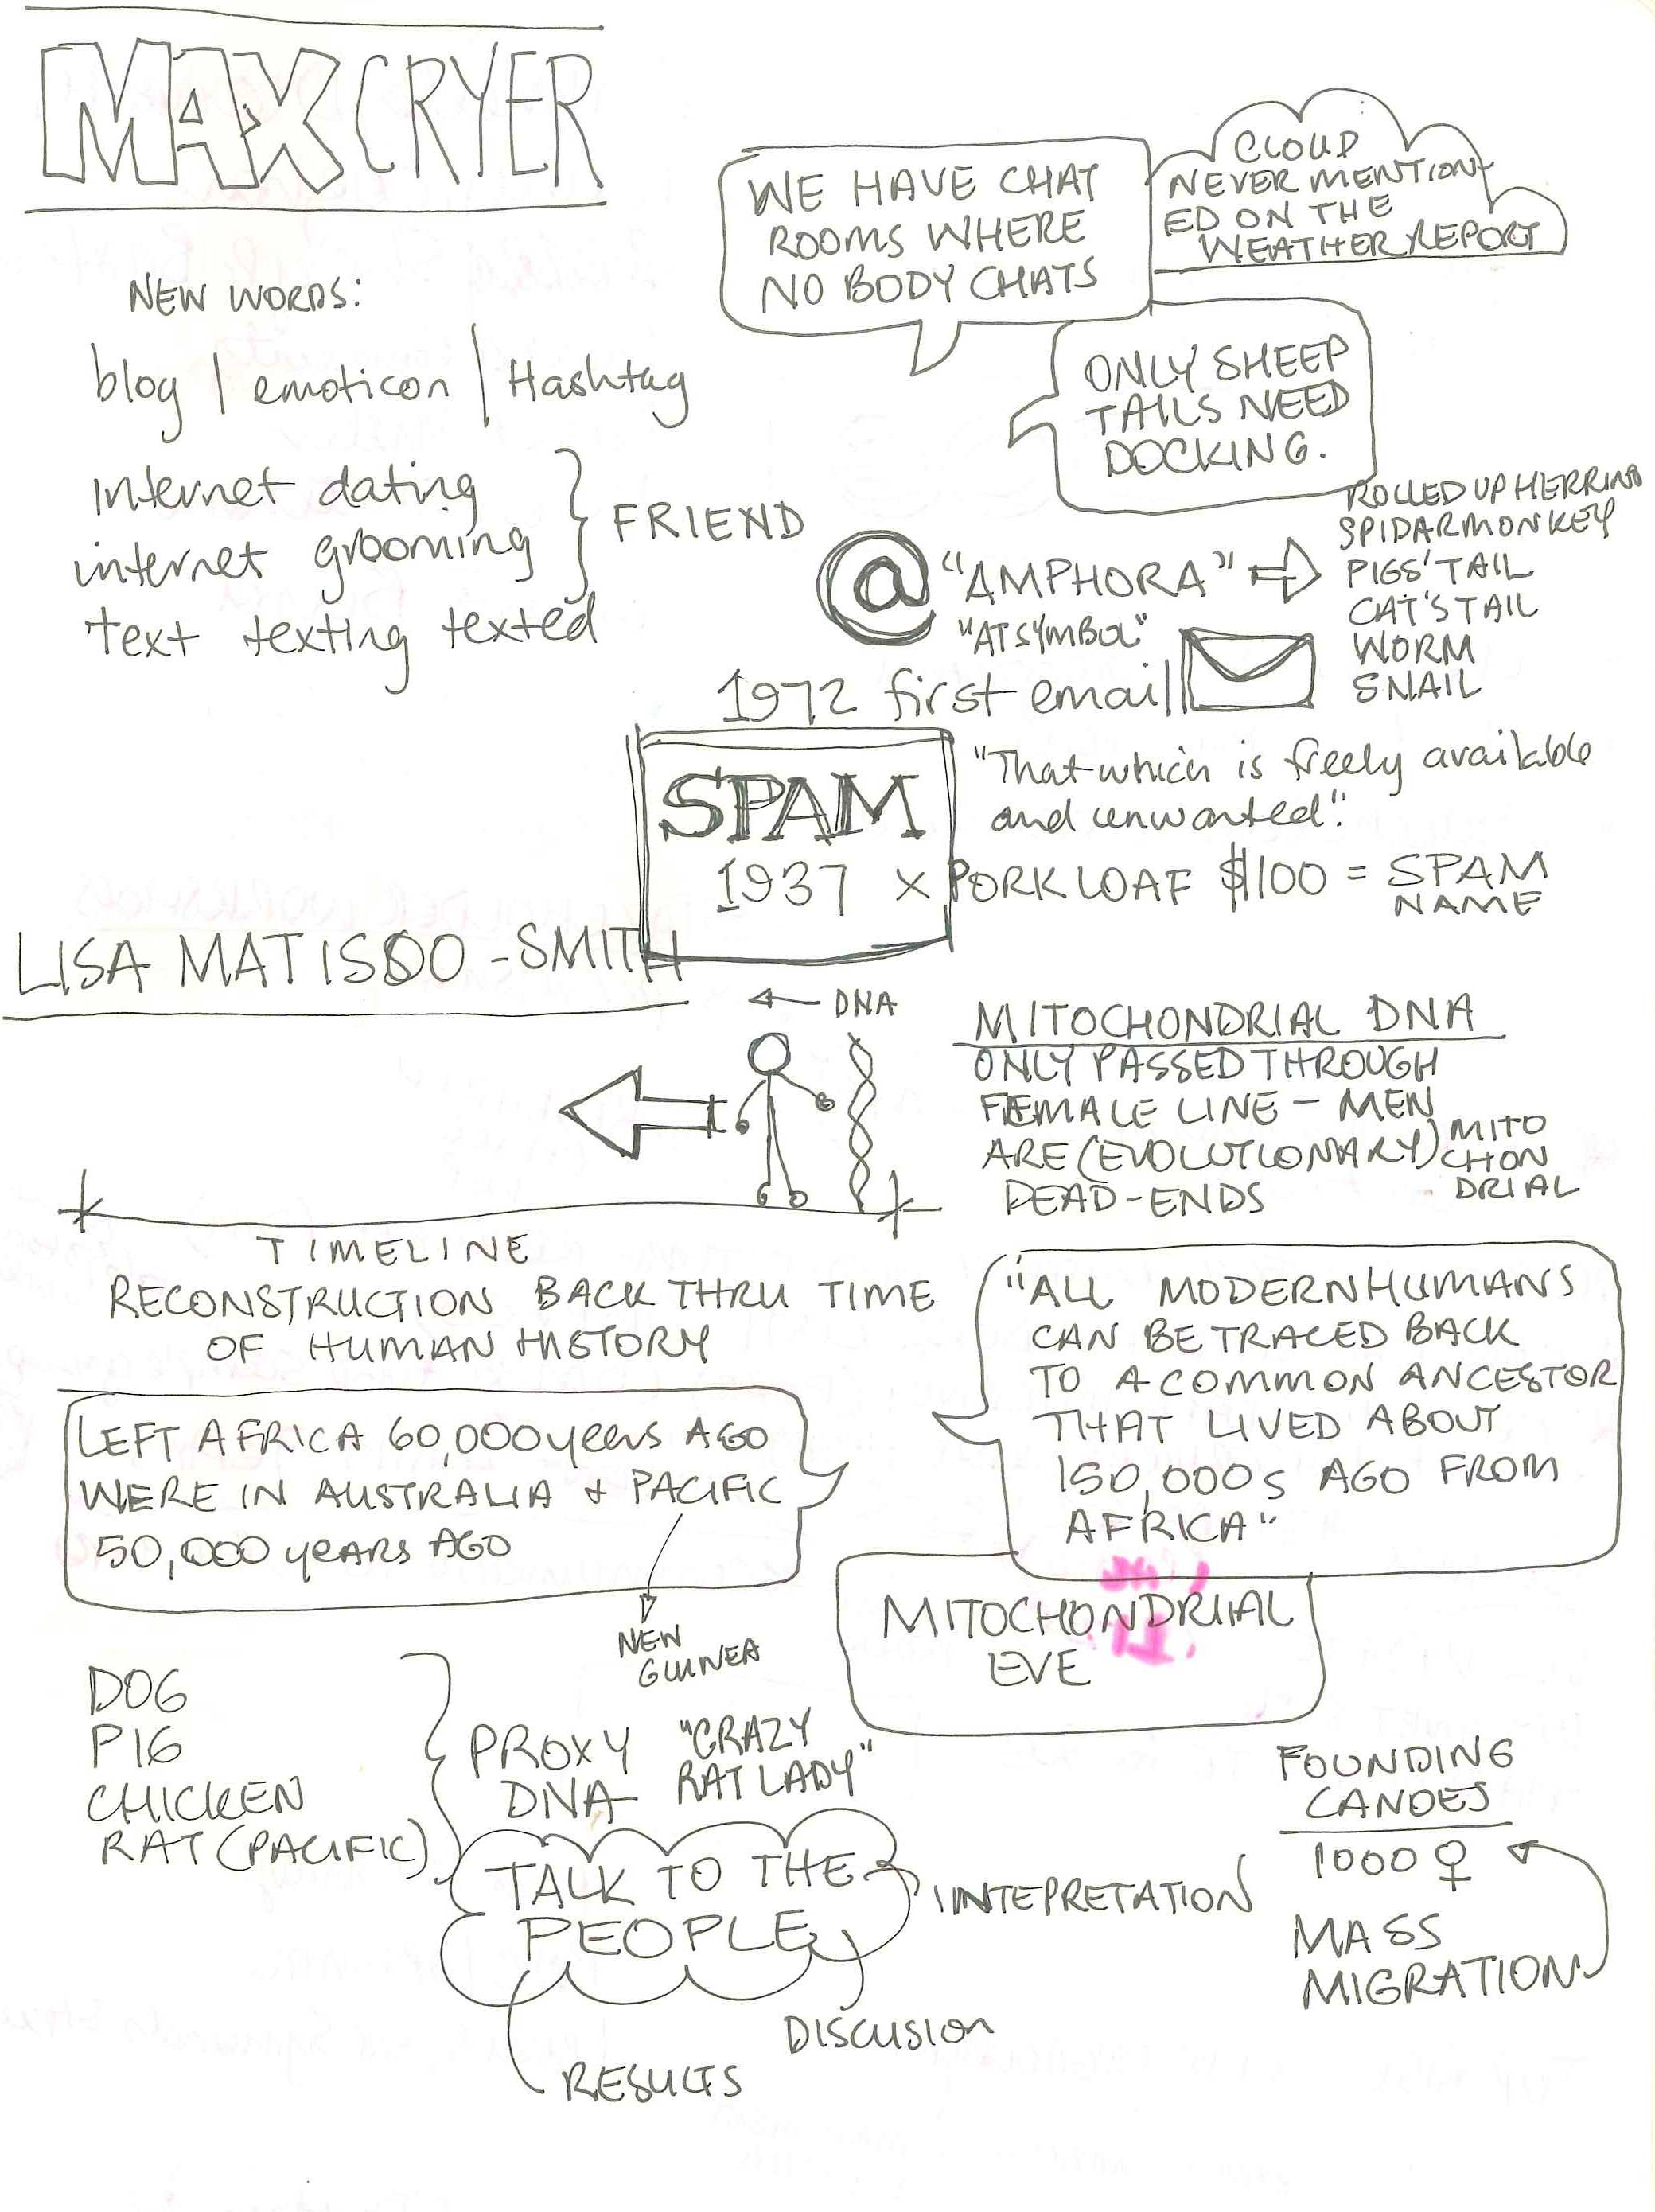 MAX CRYER
NEW WORDS:
blog | emoticon | Hashtag
internet dating
internet grooming
text texting texted
FRIEND
WE HAVE CHAT
ROOMS WHERE
NO BODY CHATS
CLOUD
NEVER MENTION-
ED ON THE
WEATHER REPORT
ONLY SHEEP
TAILS NEED
DOCKING.
@ "AMPHORA"
"AT SYMBOL"
ROLLED UP HERRING
SPIDARMONKEY
PIGS' TAIL
CAT'S TAIL
WORM
SNAIL
1972 first email
SPAM
"That which is freely available
and unwanted".
1937 x PORK LOAF $100 = SPAM
NAME
LISA MATISOO-SMITH
← DNA
TIMELINE
RECONSTRUCTION BACK THRU TIME
OF HUMAN HISTORY
MITOCHONDRIAL DNA
ONLY PASSED THROUGH
FEMALE LINE - MEN
ARE (EVOLUTIONARY)
DEAD-ENDS
MITO
CHON
DRIAL
"ALL MODERN HUMANS
CAN BE TRACED BACK
TO A COMMON ANCESTOR
THAT LIVED ABOUT
150,000s AGO FROM
AFRICA"
LEFT AFRICA 60,000 years AGO
WERE IN AUSTRALIA + PACIFIC
50,000 years AGO
NEW
GUINEA
MITOCHONDRIIAL
EVE
DOG
PIG
CHICKEN
RAT (PACIFIC)
PROXY
DNA
"CRAZY
RAT LADY"
TALK TO THE
PEOPLE
INTEPRETATION
DISCUSION
RESULTS
FOUNDING
CANOES
1000 ♀
MASS
MIGRATION